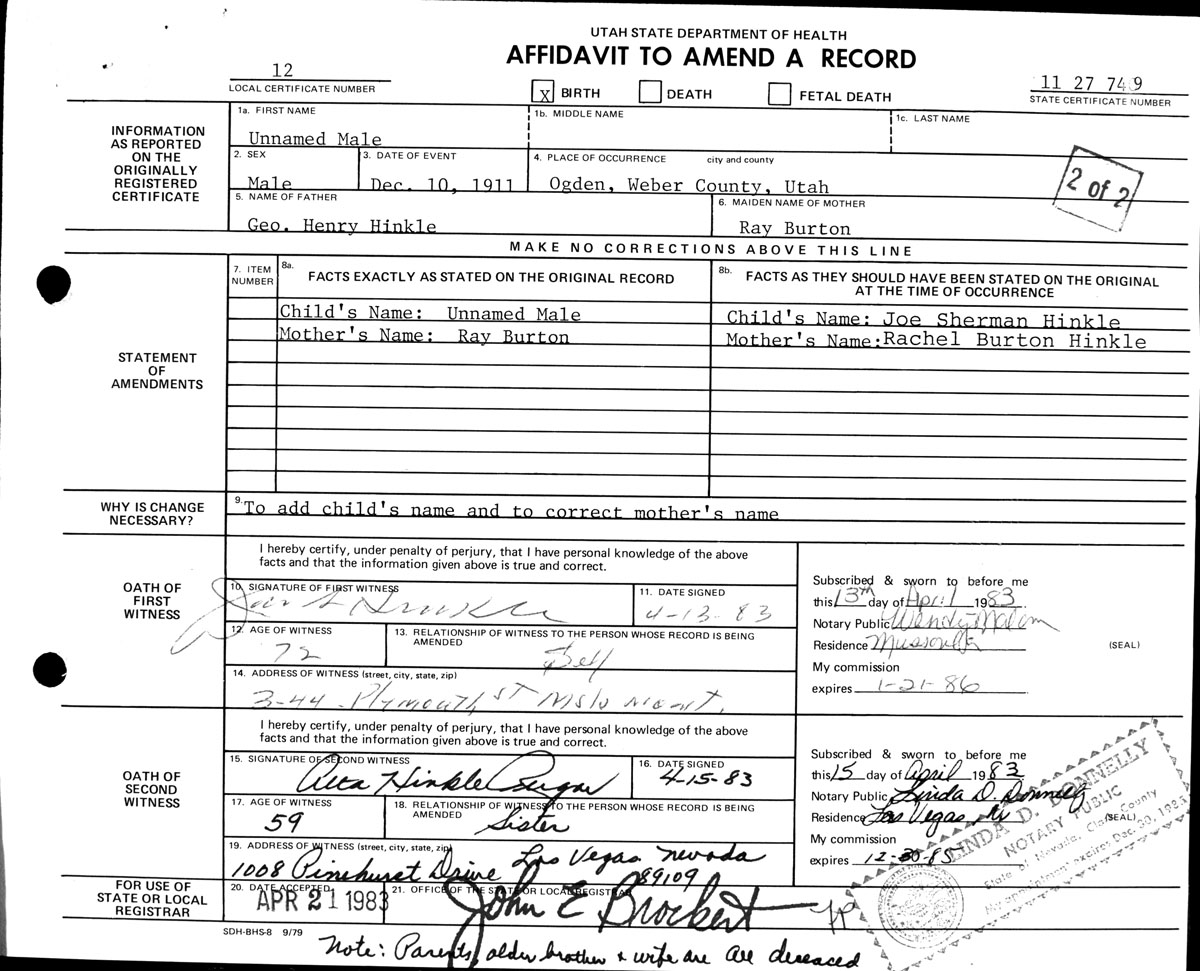 UTAH STATE DEPARTMENT OF HEALTH
AFFIDAVIT TO AMEND A RECORD
12
LOCAL CERTIFICATE NUMBER
X BIRTH DEATH FETAL DEATH
11 27 749
STATE CERTIFICATE NUMBER
INFORMATION AS REPORTED ON THE ORIGINALLY REGISTERED CERTIFICATE
1a. FIRST NAME 1b. MIDDLE NAME 1c. LAST NAME
Unnamed Male
2. SEX 3. DATE OF EVENT 4. PLACE OF OCCURRENCE city and county
Male Dec. 10, 1911 Ogden, Weber County, Utah
2 of 2
5. NAME OF FATHER 6. MAIDEN NAME OF MOTHER
Geo. Henry Hinkle Ray Burton
MAKE NO CORRECTIONS ABOVE THIS LINE
STATEMENT OF AMENDMENTS
7. ITEM NUMBER
8a. FACTS EXACTLY AS STATED ON THE ORIGINAL RECORD
8b. FACTS AS THEY SHOULD HAVE BEEN STATED ON THE ORIGINAL
AT THE TIME OF OCCURRENCE
Child's Name: Unnamed Male Child's Name: Joe Sherman Hinkle
Mother's Name: Ray Burton Mother's Name: Rachel Burton Hinkle
WHY IS CHANGE NECESSARY?
9. To add child's name and to correct mother's name
OATH OF FIRST WITNESS
I hereby certify, under penalty of perjury, that I have personal knowledge of the above
facts and that the information given above is true and correct.
10. SIGNATURE OF FIRST WITNESS 11. DATE SIGNED
Hinkle 4-13-83
12. AGE OF WITNESS 13. RELATIONSHIP OF WITNESS TO THE PERSON WHOSE RECORD IS BEING
AMENDED
72 Self
14. ADDRESS OF WITNESS (street, city, state, zip)
Plymouth St Mslo Mont.
Subscribed & sworn to before me
this 13th day of April 1983
Notary Public Wendy
Residence Missoula (SEAL)
My commission
expires 1-21-86
OATH OF SECOND WITNESS
I hereby certify, under penalty of perjury, that I have personal knowledge of the above
facts and that the information given above is true and correct.
15. SIGNATURE OF SECOND WITNESS 16. DATE SIGNED
Hinkle 4-15-83
17. AGE OF WITNESS 18. RELATIONSHIP OF WITNESS TO THE PERSON WHOSE RECORD IS BEING
AMENDED
59 Sister
19. ADDRESS OF WITNESS (street, city, state, zip)
1008 Pinehurst Drive Las Vegas, Nevada
89109
Subscribed & sworn to before me
this 15 day of April 1983
Notary Public Linda D. Donnelly
Residence Las Vegas, Nv (SEAL)
My commission
expires 12-30-85
LINDA D. DONNELLY
NOTARY PUBLIC
State of Nevada, Clark County
My appointment expires Dec. 30, 1985
FOR USE OF STATE OR LOCAL REGISTRAR
20. DATE ACCEPTED 21. OFFICE OF THE STATE OR LOCAL REGISTRAR
APR 21 1983 John E Brockert
SDH-BHS-8 9/79
Note: Parents, older brother & wife are all deceased